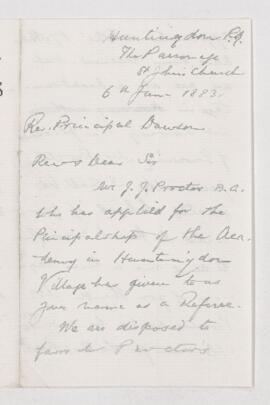 Huntingdon P.Q.
The Parsonage
St John's Church
6th June 1883.
Re. Principal Dawson
Revd Dear Sir
Mr J. J. Procter B.A.
who has applied for the
Principalship of the Aca-
demy in Huntingdon
Village has given to us
your name as a Referee.
We are disposed to
favor Mr Procter's